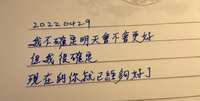 20220429
我不確定明天會不會更好
但我很確定
現在的你就已經夠好了